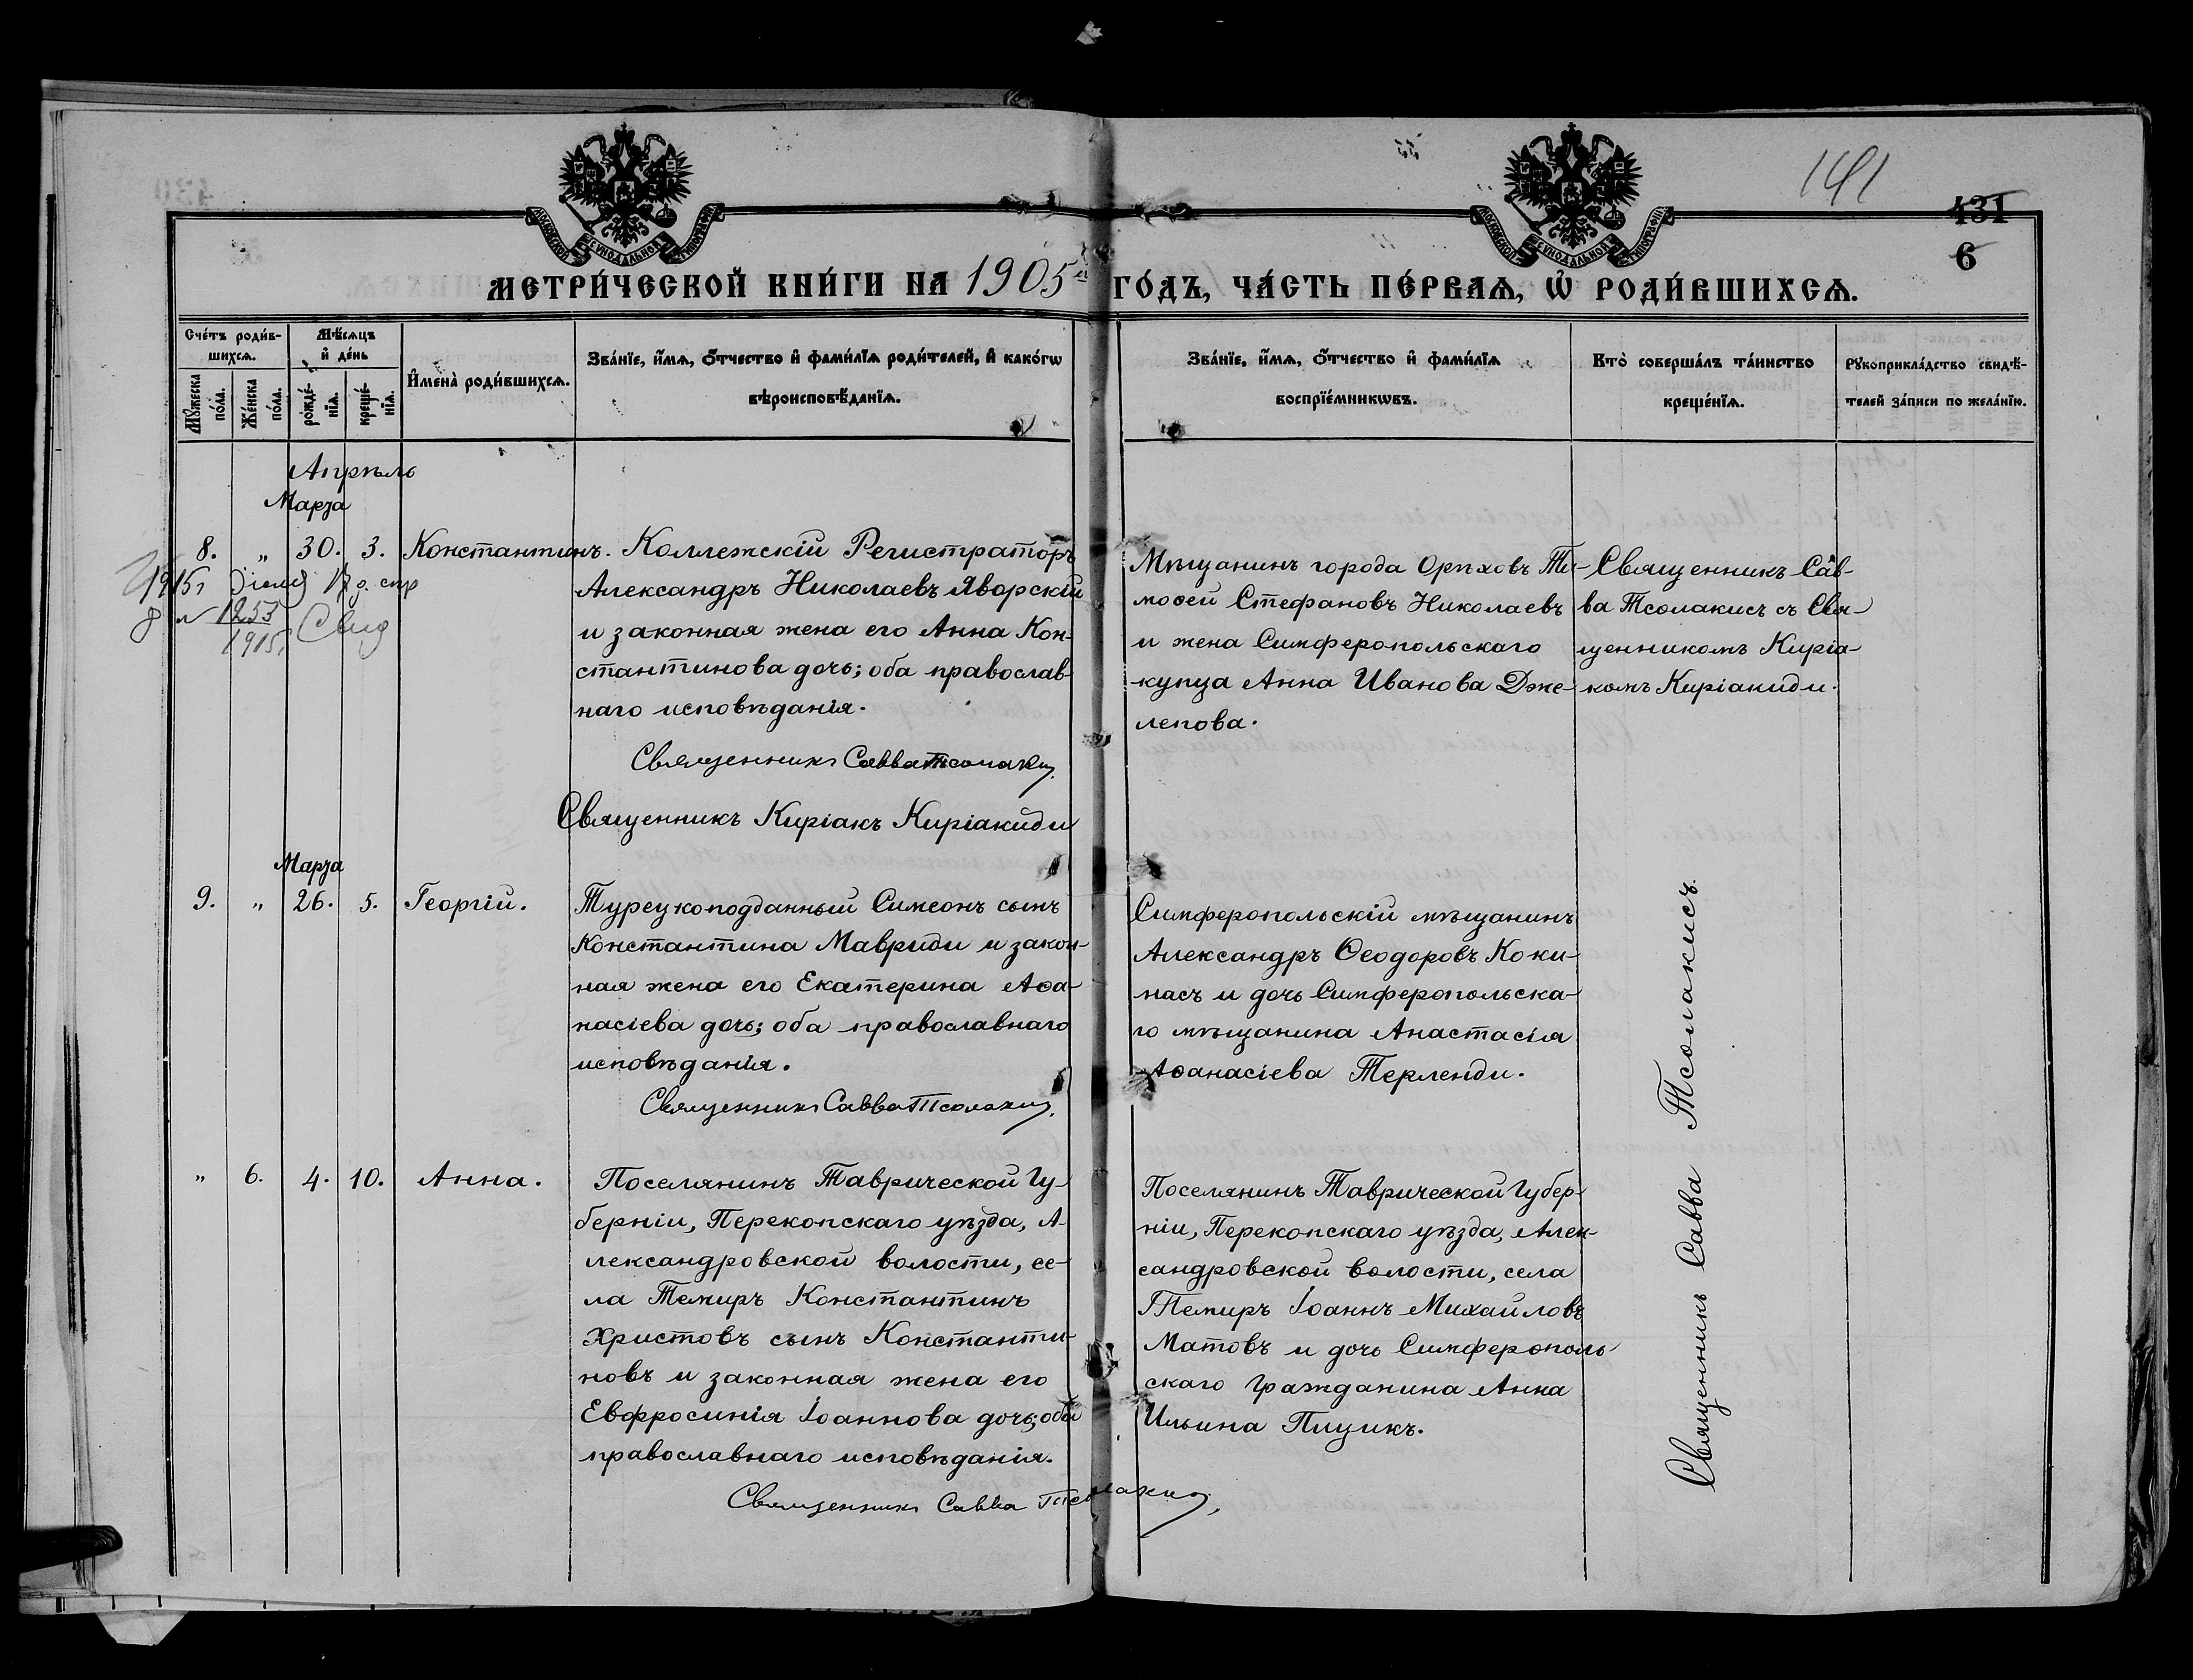 141
431
6
МОСКОВСКОЙ СѴНОДАЛЬНОЙ ТИПОГРАФІИ
МОСКОВСКОЙ СѴНОДАЛЬНОЙ ТИПОГРАФІИ
МЕТРИ́ЧЕСКОЙ КНИ́ГИ НА 1905й ГО́ДЪ, ЧА́СТЬ ПЕ́РВАѦ, Ѡ҆ РОДИ́ВШИХСѦ.
Сче́тъ роди́в-
шихсѧ.
Мꙋжеска по́ла.
Же́нска по́ла.
Мѣ́сѧцъ
и҆ де́нь
рожде́-
нїѧ.
креще́-
нїѧ.
И҆мена̀ роди́вшихсѧ.
Зва́нїе, и҆́мѧ, ѻ҆́тчество и҆ фами́лїѧ роди́телей, и҆ како́гѡ
вѣроисповѣ́данїѧ.
Зва́нїе, и҆́мѧ, ѻ҆́тчество и҆ фами́лїѧ
воспрїе́мникѡвъ.
Кто̀ соверша́лъ та́инство
креще́нїѧ.
Рꙋкоприкла́дство свидѣ́-
телей за́писи по жела́нїю.
Апрѣль
Марта
8. „ 30. 3. Константинъ.
1915г
№ 1253
1915г
Свид
Коллежскій Регистраторъ
Александръ Николаевъ Яворскій
и законная жена его Анна Кон-
стантинова дочь; оба православ-
наго исповѣданія.
Священникъ Савва Тсолакис
Священникъ Киріакъ Киріакиди
Мѣщанинъ города Орѣховъ Ти-
моѳей Стефановъ Николаевъ
и жена Симферопольскаго
купца Анна Иванова Дже-
лепова.
Священникъ Сав-
ва Тсолакисъ съ Свя-
щенникомъ Киріа-
комъ Киріакиди.
Марта
9. „ 26. 5. Георгій.
Турецкоподданный Симеонъ сынъ
Константина Мавриди и закон-
ная жена его Екатерина Аѳа-
насіева дочь; оба православнаго
исповѣданія.
Священникъ Савва Тсолакис
Симферопольскій мѣщанинъ
Александръ Ѳеодоровъ Коки-
насъ и дочь Симферопольска-
го мѣщанина Анастасія
Аѳанасіева Терленди.
„ 6. 4. 10. Анна.
Поселянинъ Таврической Гу-
берніи, Перекопскаго уѣзда, А-
лександровской волости, се-
ла Темиръ Константинъ
Христовъ сынъ Константи-
новъ и законная жена его
Евфросинія Іоаннова дочь; оба
православнаго исповѣданія.
Священникъ Савва Тсолакис
Поселянинъ Таврической Губер-
ніи, Перекопскаго уѣзда, Алек-
сандровской волости, села
Темиръ Іоаннъ Михайловъ
Матовъ и дочь Симферополь-
скаго Гражданина Анна
Ильина Пицикъ.
Священникъ Савва Тсолакисъ.